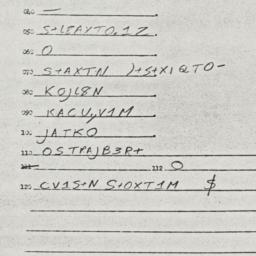 040 —
050 S+LEAXTO,1Z.
060 O
070 S+AXTN )+S+XIQTO-
080 KOJL8N
090 KACV,V1M
100 JATKO
110 OSTPAJB3R+
112 O
120 CV1S+N S+OXT1M $